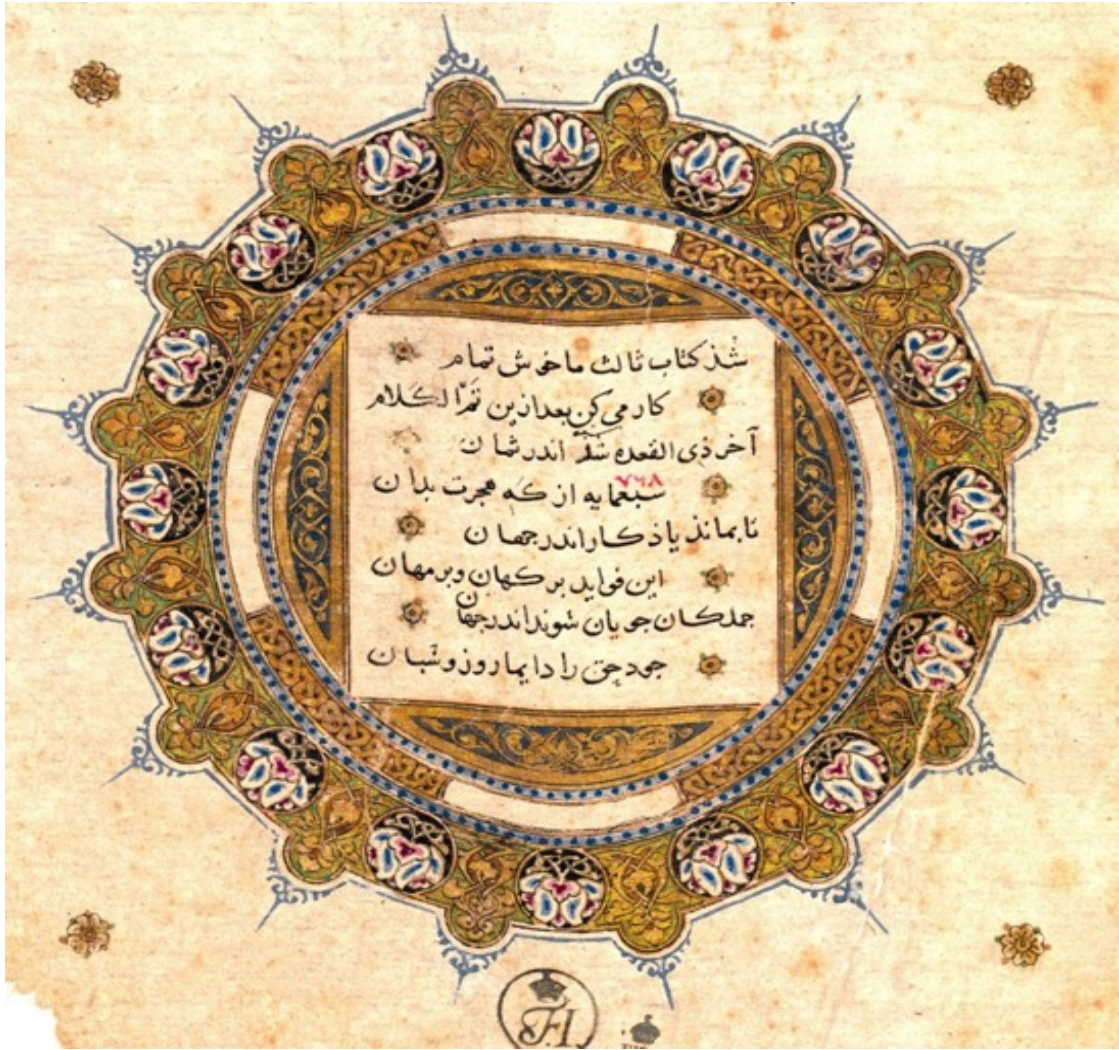 شذ کتاب ثالث ما خوش تمام
کار می کن بعد ازین تمّ الکلام
آخر ذی القعده شد اندر ثمان
۷۶۸
سبعمایه از که هجرت بدان
تا بماند یاذکار اندر جهان
این فواید بر کهان و بر مهان
جملکان جویان شوند اندر جهان
جود حق را دایما روز و شبان